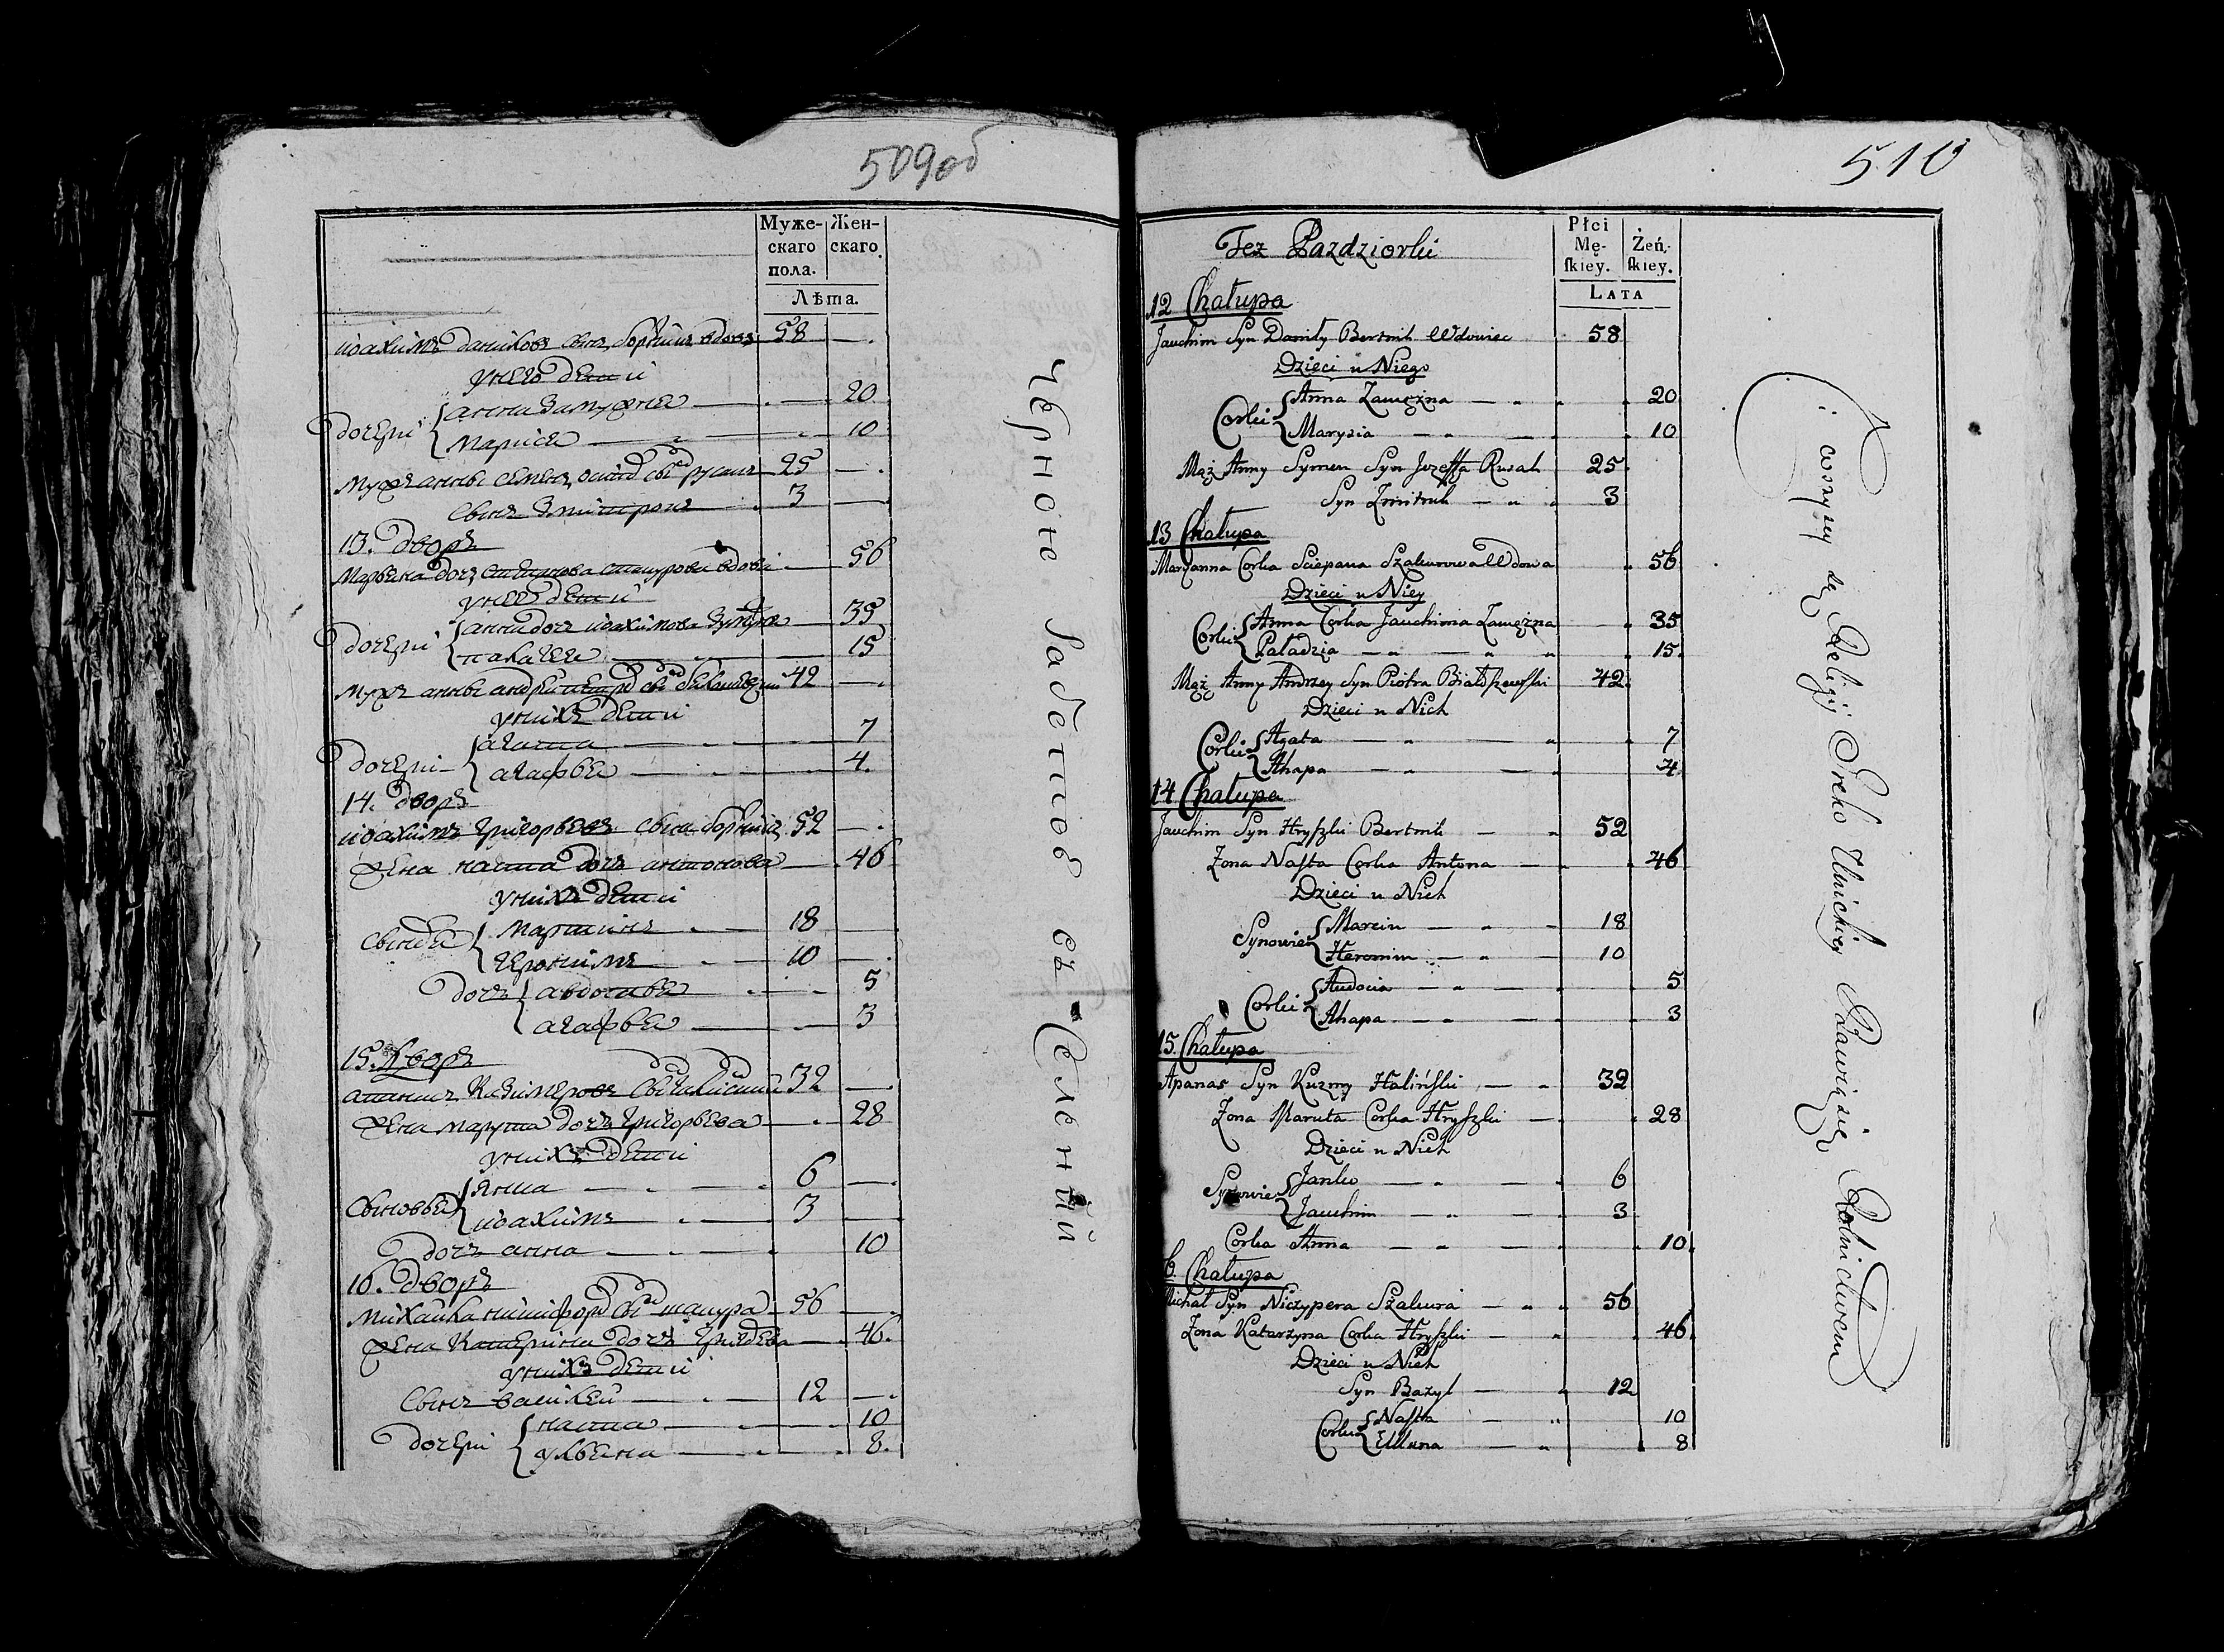 509об
Муже-скаго пола.
Жен-скаго.
Лѣта.
иоахимъ данилов сынъ вдовец 58
у него дети
дочери анна замужня 20
марися 10
мужъ анны семенъ 25
сынъ 3
13. дворъ
марьяна дочь вдова 56
у нее дети
дочери анна дочь иоахимова 35
палагея 15
мужъ анны андрей 42
у нихъ дети
дочери агата 7
агафья 4.
14. дворъ
иоахимъ григорьевъ сынъ 52
жена наста дочь антонова 46
у нихъ дети
сыновья мартинъ 18
геронимъ 10
дочь авдотья 5
агафья 3
15. дворъ
32
жена марута дочь григорьева 28
у нихъ дети
сыновья 6
иоахимъ 3
дочь анна 10
16. дворъ
михайла 56
жена катерина дочь 46.
у нихъ дети
сынъ василей 12
дочери наста 10
ульяна 8.
съ Селеный
510
Tez Pazdziorki
Płci
Mę-skiey.
Żeń-skiey.
LATA
12 Chałupa
Jauchim Syn Daniły Bertnik Wdowiec 58
Dzieci u Niego
Corki Anna Zamężna 20
Marysia 10
Mąż Anny Symon Syn Jozeffa Rusak 25
Syn Zmitruk 3
13 Chałupa
Maryanna Corka Sciepana Szakurowa Wdowa 56
Dzieci u Niey
Corki Anna Corka Jauchima Zamężna 35
Paładzia 15.
Mąż Anny Andrzey Syn Piotra 42
Dzieci u Nich
Corki Agata 7
Ahapa 4
14 Chałupa
Jauchim Syn Hryszki Bertnik 52
Zona Nasta Corka Antona 46
Dzieci u Nich
Synowie Marcin 18
Heronim 10
Corki Audocia 5
Ahapa 3
15. Chałupa
Apanas Syn Kuzmy Haliński 32
Zona Maruta Corka Hryszki 28
Dzieci u Nich
Synowie Janko 6
Jauchim 3
Corka Anna 10.
6. Chałupa
Michał Syn Niczypera Szakura 56
Zona Katarzyna Corka Hryszki 46
Dzieci u Nich
Syn Bazyl 12
Corki Nasta 10
Ullana 8
i wszyscy są Religij Greko Unickiey Bawią się Rolnictwem